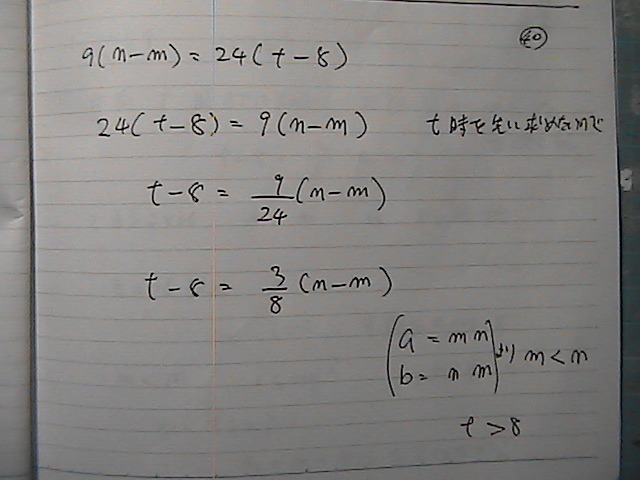 40
9(n-m) = 24(t-8)
24(t-8) = 9(n-m) t 時を先に求めたいので
t-8 = 9/24 (n-m)
t-8 = 3/8 (n-m)
(a = m n
b = n m) より m < n
t > 8